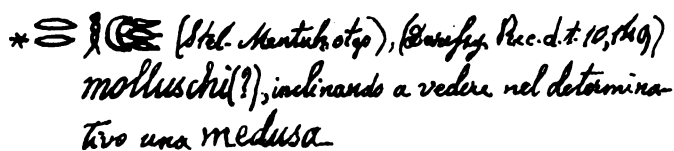 * (Stel. Mentuhotep), (Daressy. Rec. d. t. 10, 149)
molluschi(?), inclinando a vedere nel determina-
tivo una medusa